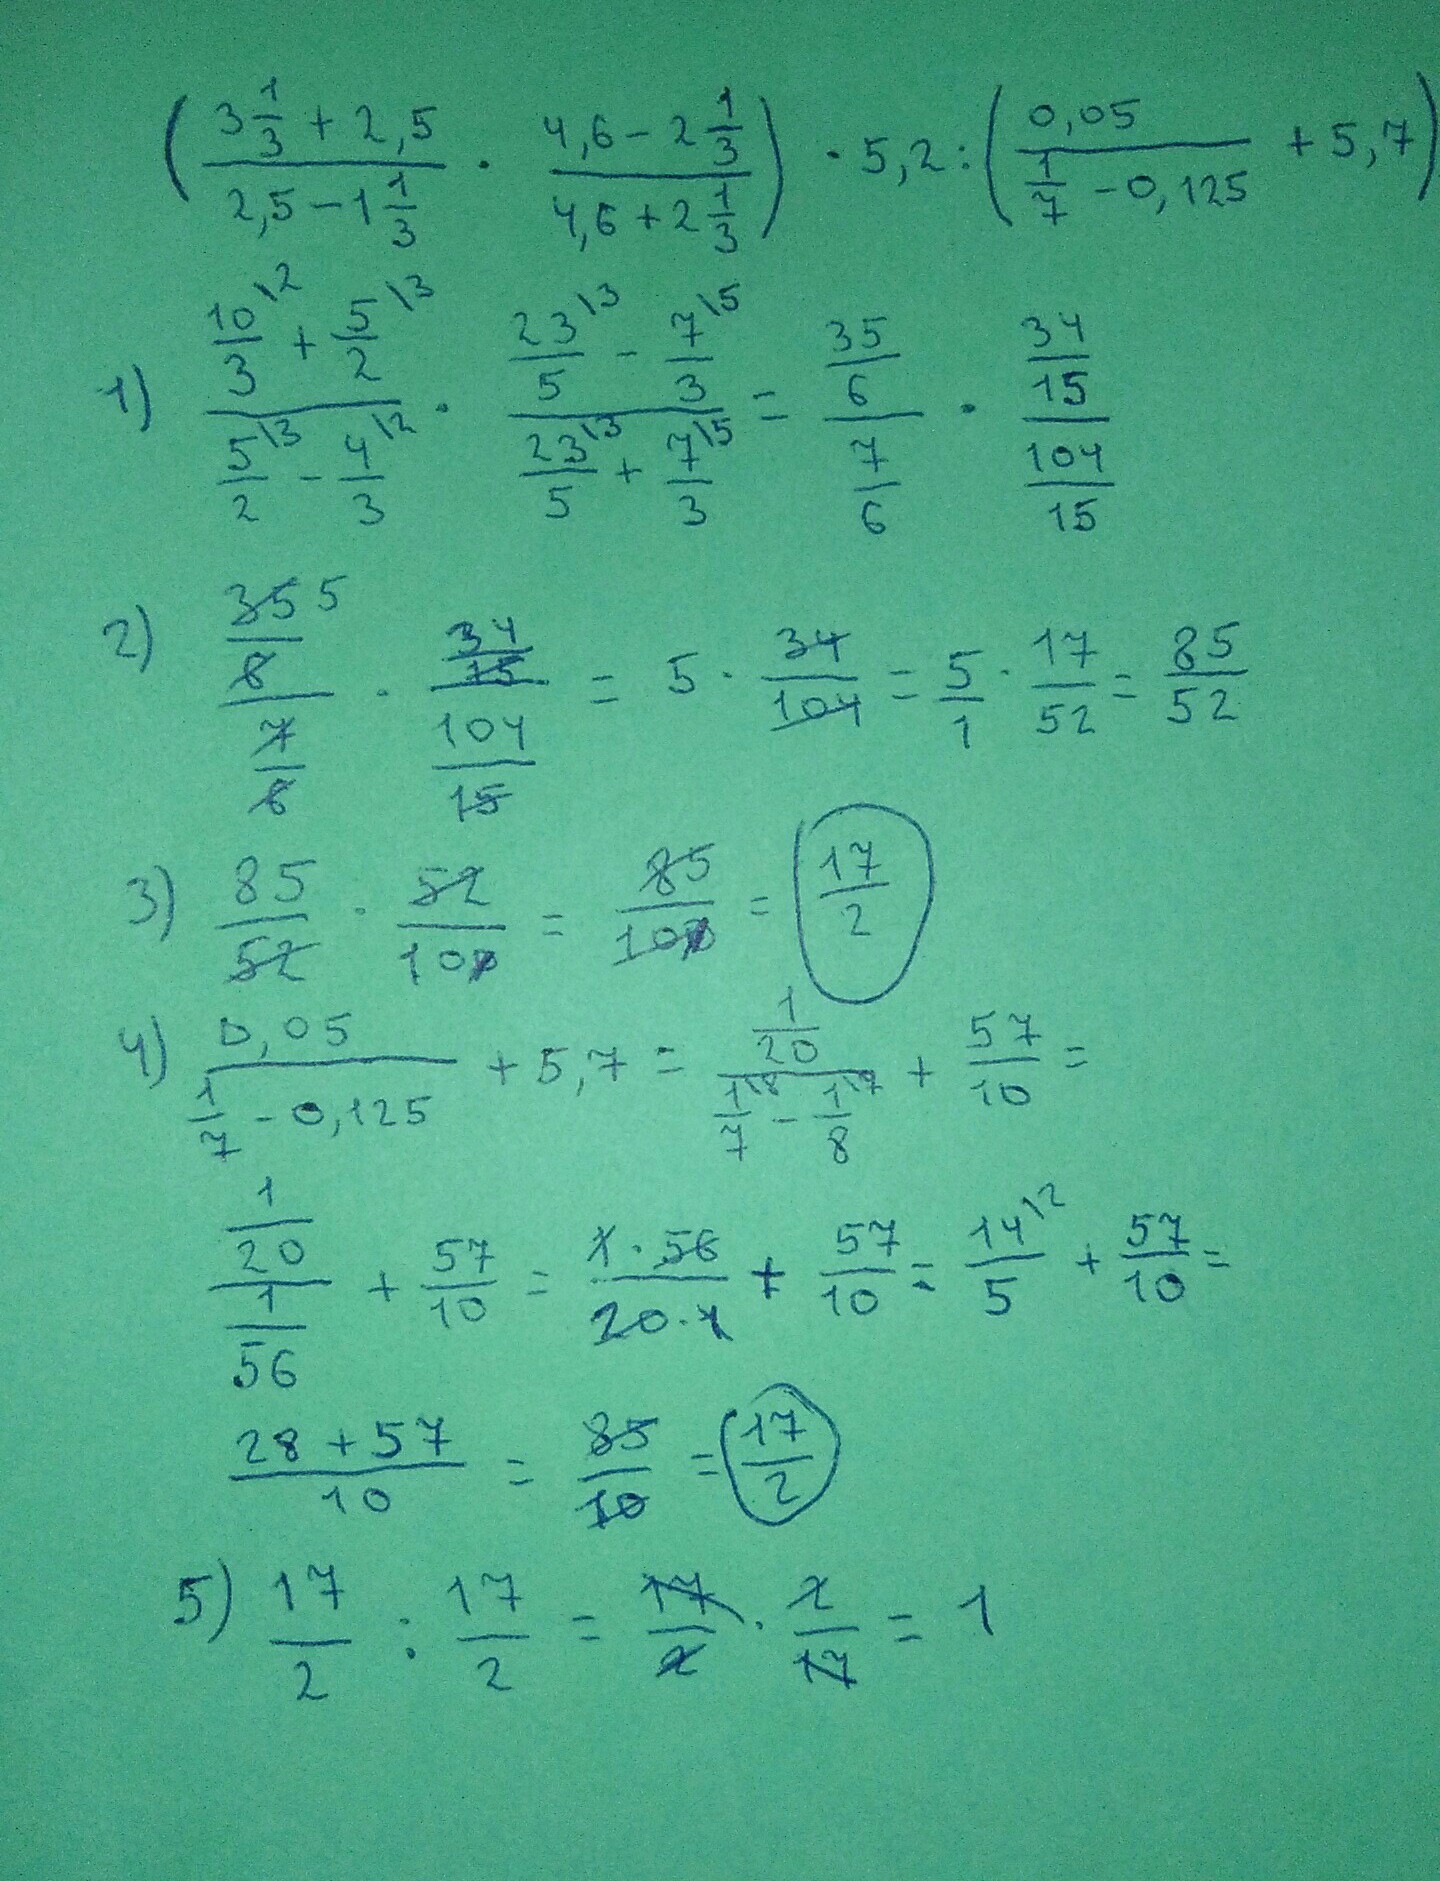 (3 1/3 + 2,5 / 2,5 - 1 1/3 · 4,6 - 2 1/3 / 4,6 + 2 1/3) · 5,2 : (0,05 / 1/7 - 0,125 + 5,7)
1) 10/3 \2 + 5/2 \3 / 5/2 \3 - 4/3 \2 · 23/5 \3 - 7/3 \5 / 23/5 \3 + 7/3 \5 = 35/6 / 7/6 · 34/15 / 104/15
2) 35 5/6 / 7/6 · 34/15 / 104/15 = 5 · 34/104 = 5/1 · 17/52 = 85/52
3) 85/52 · 52/100 = 85/100 = 17/2
4) 0,05 / 1/7 - 0,125 + 5,7 = 1/20 / 1/7 \8 - 1/8 \7 + 57/10 =
1/20 / 1/56 + 57/10 = 1 · 56 / 20 · 1 + 57/10 = 14/5 \2 + 57/10 =
28 + 57 / 10 = 85/10 = 17/2
5) 17/2 : 17/2 = 17/2 · 2/17 = 1